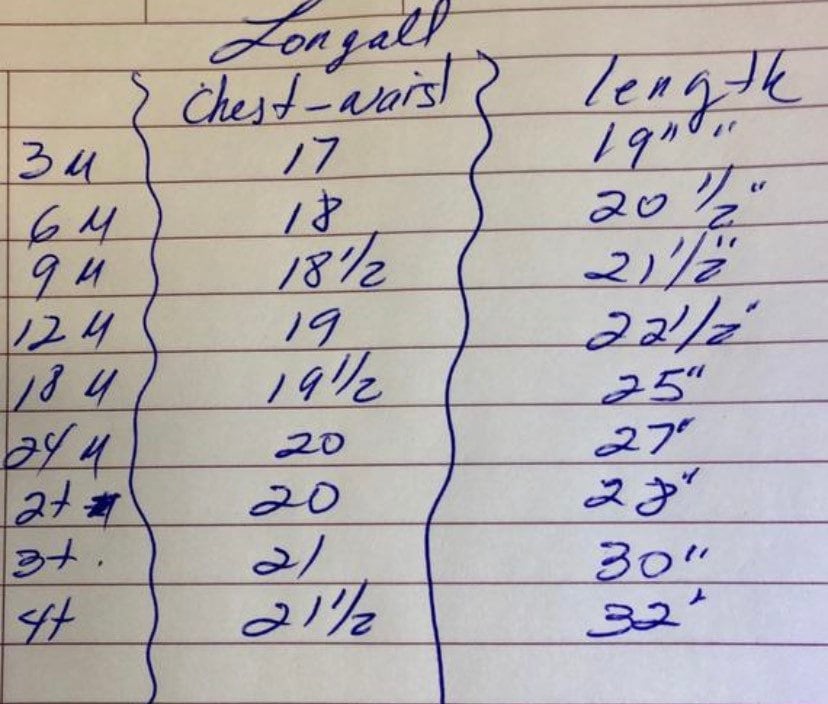 Longall
Chest-waist length
3M 17 19" "
6M 18 20 1/2"
9M 18 1/2 21 1/2"
12M 19 22 1/2"
18M 19 1/2 25"
24M 20 27"
2t 20 28"
3t. 21 30"
4t 21 1/2 32'